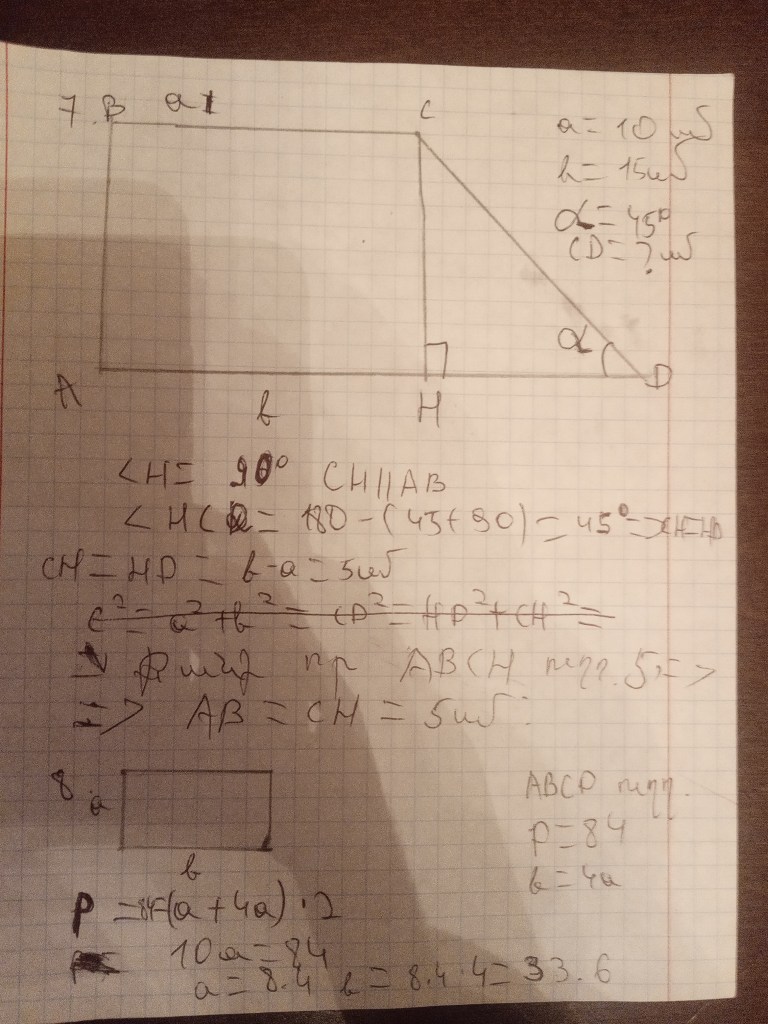 7. B a C
a = 10 սմ
b = 15 սմ
α = 45°
CD = ? սմ
α
A b H D
<H = 90° CH || AB
<HCD = 180 - (45 + 90) = 45° => CH=HD
CH = HD = b-a = 5 սմ
c² = a² + b² = CD² = HD² + CH² =
ABCH =>
=> AB = CH = 5 սմ:
8. a
b
ABCD
P = 84
b = 4a
P = 84 = (a + 4a) · 2
10a = 84
a = 8.4 b = 8.4 · 4 = 33.6